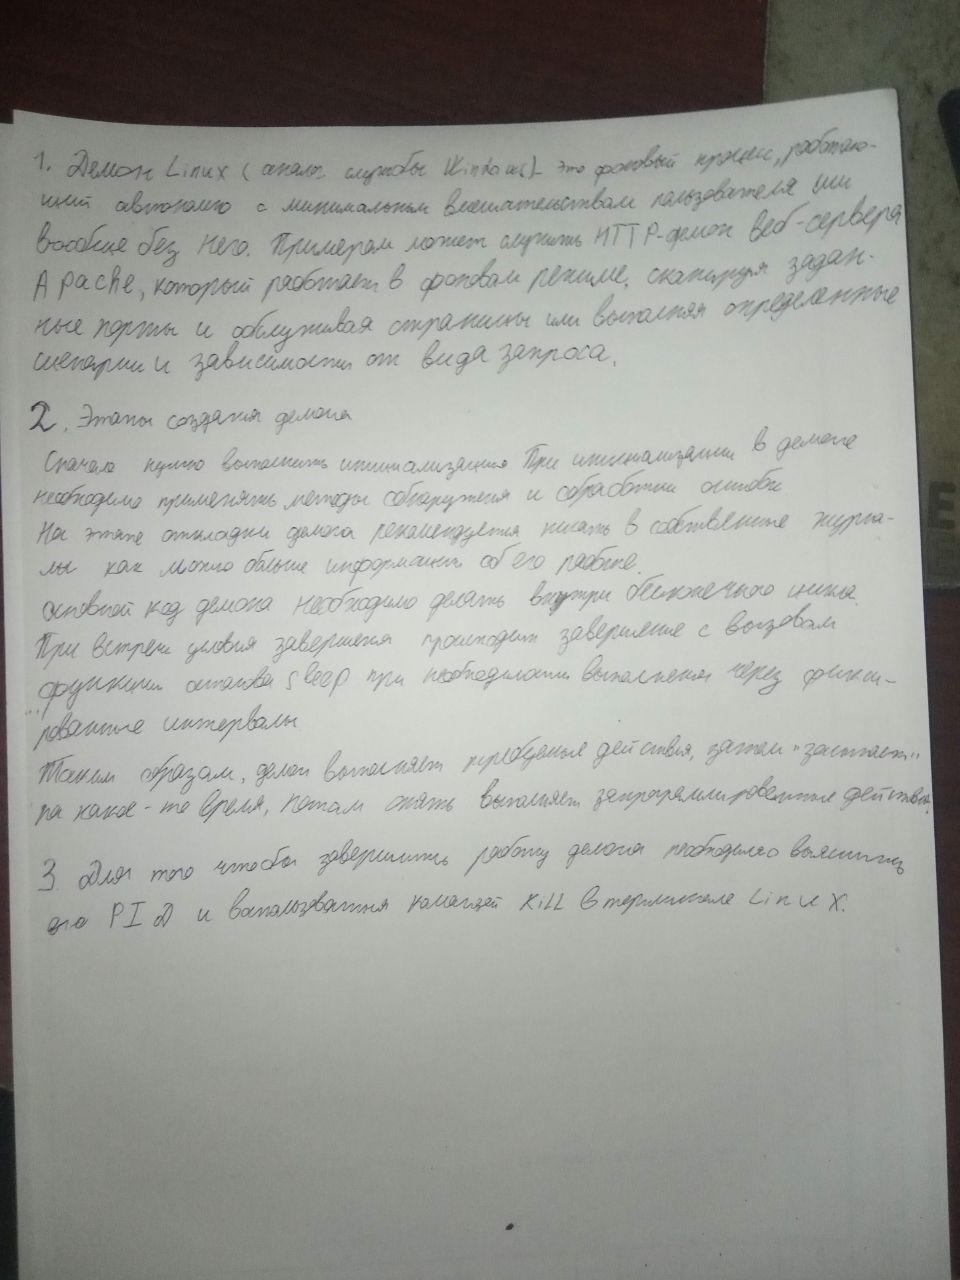 1. Демон Linux (аналог службы Windows) - это фоновый процесс, работаю-
щий автономно с минимальным вмешательством пользователя или
вообще без него. Примером может служить HTTP-демон веб-сервера
Apache, который работает в фоновом режиме, сканируя задан-
ные порты и обслуживая страницы или выполняя определенные
сценарии и зависимости от вида запроса.
2. Этапы создания демона
Сначала нужно выполнить инициализацию При инициализации в демоне
необходимо применять методы обнаружения и обработки ошибок
На этапе отладки демона рекомендуется писать в собственные журна-
лы как можно больше информации об его работе.
основной код демона необходимо делать внутри бесконечного цикла.
При встрече условия завершения происходит завершение с вызовом
функции останова sleep при необходимости выполнения через фикси-
рованные интервалы
Таким образом, демон выполняет требуемые действия, затем "засыпает"
на какое-то время, потом опять выполняет запрограммированные действия.
3. Для того чтобы завершить работу демона необходимо выяснить
его PID и воспользоваться командой Kill в терминале Linux.